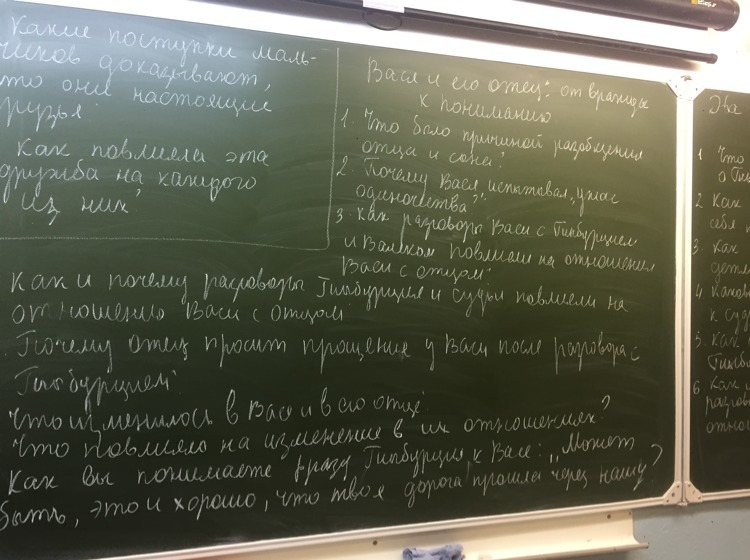 Какие поступки маль-
чиков доказывают,
то они настоящие
рузья
Как повлияла эта
дружба на каждого
из них?
Вася и его отец: от вражды
к пониманию
1. Что было причиной разобщения
отца и сына?
2. Почему Вася испытывал „ужас
одиночества"?
3. Как разговоры Васи с Тыбурцием
и Валеком повлияли на отношения
Васи с отцом?
Как и почему разговоры Тыбурция и судьи повлияли на
отношению Васи с отцом
Почему отец просит прощение у Васи после разговора с
Тыбурцием?
Что изменилось в Васе и в его отце?
Что повлияло на изменение в их отношениях?
Как вы понимаете фразу Тыбурция к Васе: „Может
быть, это и хорошо, что твоя дорога прошла через нашу?
Два
1 Что
о Тыб
2 Как
себя
3. Как
дете
4
к суд
5. Как
Тыбу
6 Как
разгов
отнош